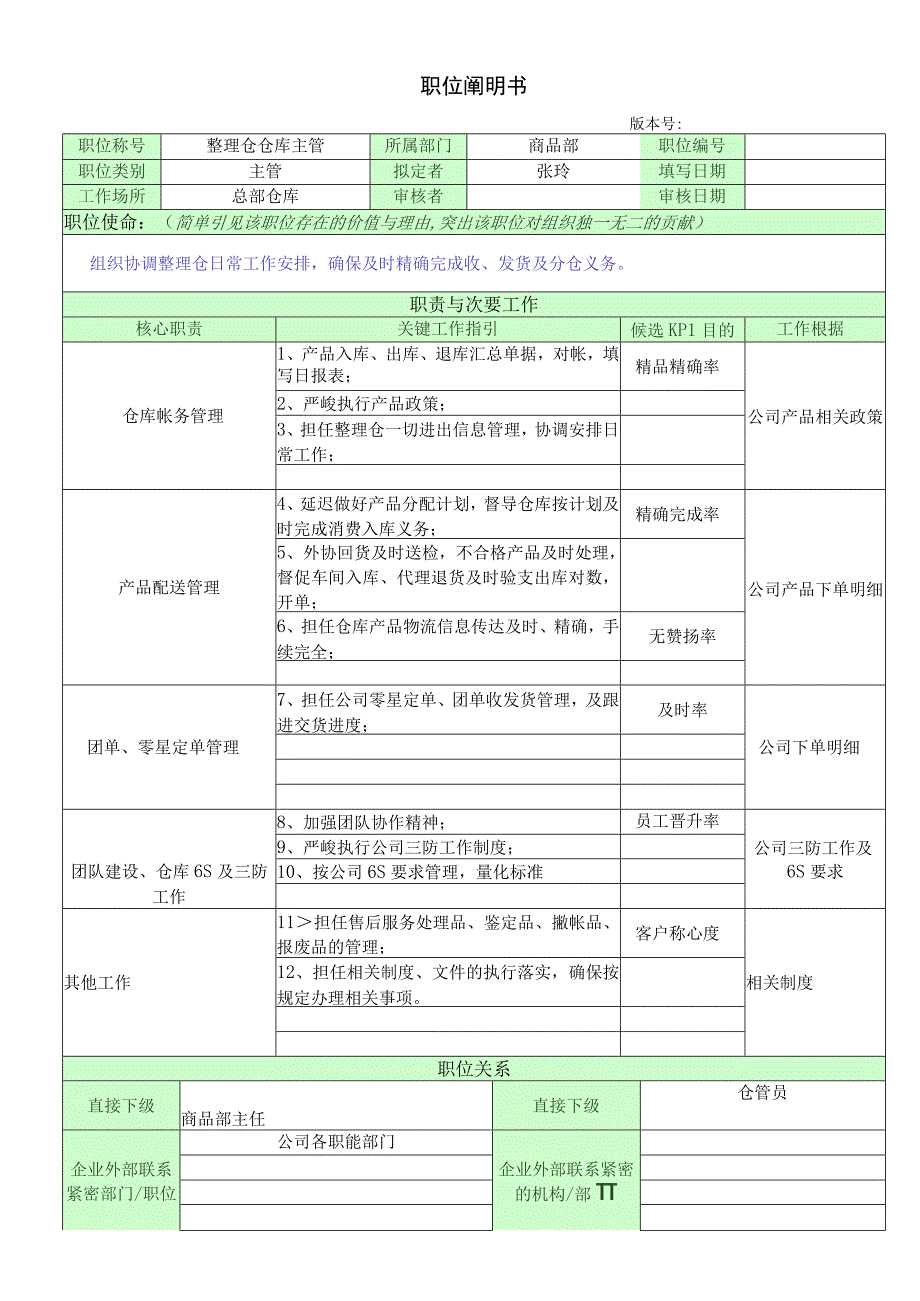 职位阐明书
版本号:
职位称号 整理仓仓库主管 所属部门 商品部 职位编号
职位类别 主管 拟定者 张玲 填写日期
工作场所 总部仓库 审核者 审核日期
职位使命：（简单引见该职位存在的价值与理由,突出该职位对组织独一无二的贡献）
组织协调整理仓日常工作安排，确保及时精确完成收、发货及分仓义务。
职责与次要工作
核心职责 关键工作指引 候选 KP1 目的 工作根据
仓库帐务管理
1、产品入库、出库、退库汇总单据，对帐，填
写日报表；
精品精确率
2、严峻执行产品政策；
3、担任整理仓一切进出信息管理，协调安排日
常工作；
公司产品相关政策
产品配送管理
4、延迟做好产品分配计划，督导仓库按计划及
时完成消费入库义务；
精确完成率
5、外协回货及时送检，不合格产品及时处理，
督促车间入库、代理退货及时验支出库对数，
开单；
6、担任仓库产品物流信息传达及时、精确，手
续完全；
无赞扬率
公司产品下单明细
团单、零星定单管理
7、担任公司零星定单、团单收发货管理，及跟
进交货进度；
及时率
公司下单明细
团队建设、仓库 6S 及三防
工作
8、加强团队协作精神；
员工晋升率
9、严峻执行公司三防工作制度；
10、按公司 6S 要求管理，量化标准
公司三防工作及
6S 要求
其他工作
11＞担任售后服务处理品、鉴定品、撇帐品、
报废品的管理；
客户称心度
12、担任相关制度、文件的执行落实，确保按
规定办理相关事项。
相关制度
职位关系
直接下级 商品部主任 直接下级 仓管员
企业外部联系
紧密部门/职位
公司各职能部门
企业外部联系紧密
的机构/部 TT